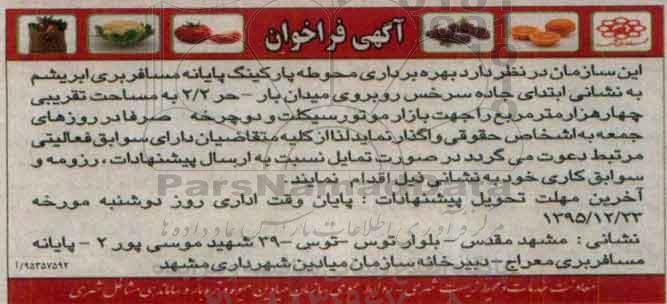 آگهی فراخوان
این سازمان در نظر دارد بهره برداری محوطه پارکینگ پایانه مسافربری ابریشم
به نشانی ابتدای جاده سرخس روبروی میدان بار - حر ۲/۲ به مساحت تقریبی
چهار هزار متر مربع را جهت بازار موتور سیکلت و دوچرخه صرفا در روزهای
جمعه به اشخاص حقوقی واگذار نماید لذا از کلیه متقاضیان دارای سوابق فعالیتی
مرتبط دعوت می گردد در صورت تمایل نسبت به ارسال پیشنهادات ، رزومه و
سوابق کاری خود به نشانی ذیل اقدام نمایند.
آخرین مهلت تحویل پیشنهادات : پایان وقت اداری روز دوشنبه مورخه
۱۳۹۵/۱۲/۲۳
نشانی : مشهد مقدس - بلوار توس - توس - ۳۹ شهید موسی پور ۲ - پایانه
مسافربری معراج - دبیرخانه سازمان میادین شهرداری مشهد
۹۵۳۵۷۵۹۲/آ
معاونت خدمات و محیط زیست شهری - روابط عمومی سازمان میادین میوه و تره بار و ساماندهی مشاغل شهری
ParsNamadData